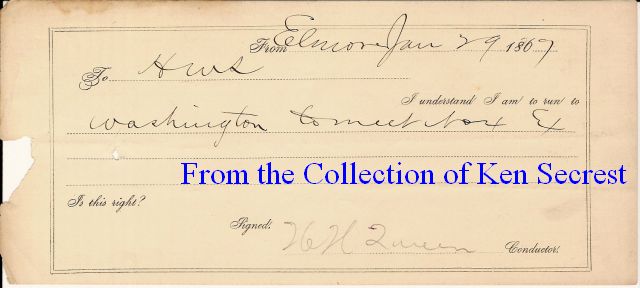 From Elmore Jan 29 1867
To H W S
I understand I am to run to
Washington to meet No 4 Ex
From the Collection of Ken Secrest
Is this right?
Signed: H H Queen Conductor.